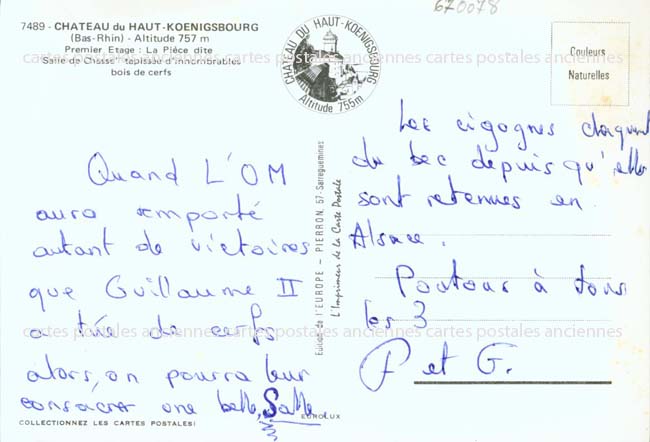 670078
7489 - CHATEAU du HAUT-KOENIGSBOURG
(Bas-Rhin) - Altitude 757 m
Premier Etage : La Pièce dite
"Salle de Chasse" tapissée d'innombrables
bois de cerfs
CHATEAU DU HAUT-KOENIGSBOURG
Altitude 755m
Couleurs
Naturelles
cartes postales anciennes cartes postales anciennes cartes postales anciennes
Quand L'OM
aura remporté
autant de victoires
que Guillaume II
a tué de cerfs
alors, on pourra leur
consacrer une belle Salle
Edition de l'EUROPE - PIERRON, 57-Sarreguemines
L'Imprimeur de la Carte Postale
Les cigognes claquent
du bec depuis qu'elles
sont retenues en
Alsace.
Poutous à tous
les 3
P et G.
cartes postales anciennes cartes postales anciennes cartes postales anciennes
COLLECTIONNEZ LES CARTES POSTALES!
EUROLUX